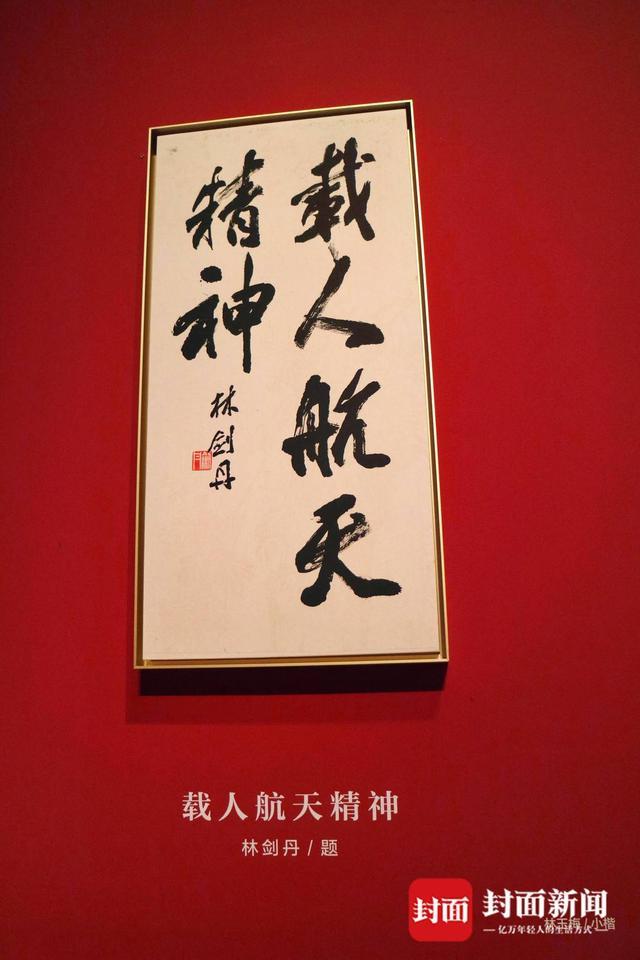 載人航天
精神
林剑丹
载人航天精神
林剑丹/题
封面
封面新闻
亿万年轻人的生活方式
林玉梅/小楷